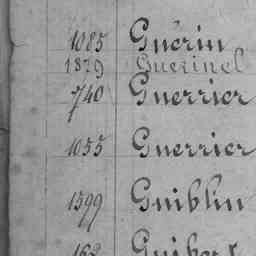 1085 Guérin
1379 Guerinel
740 Guerrier
1055 Guerrier
1599 Guiblin
162